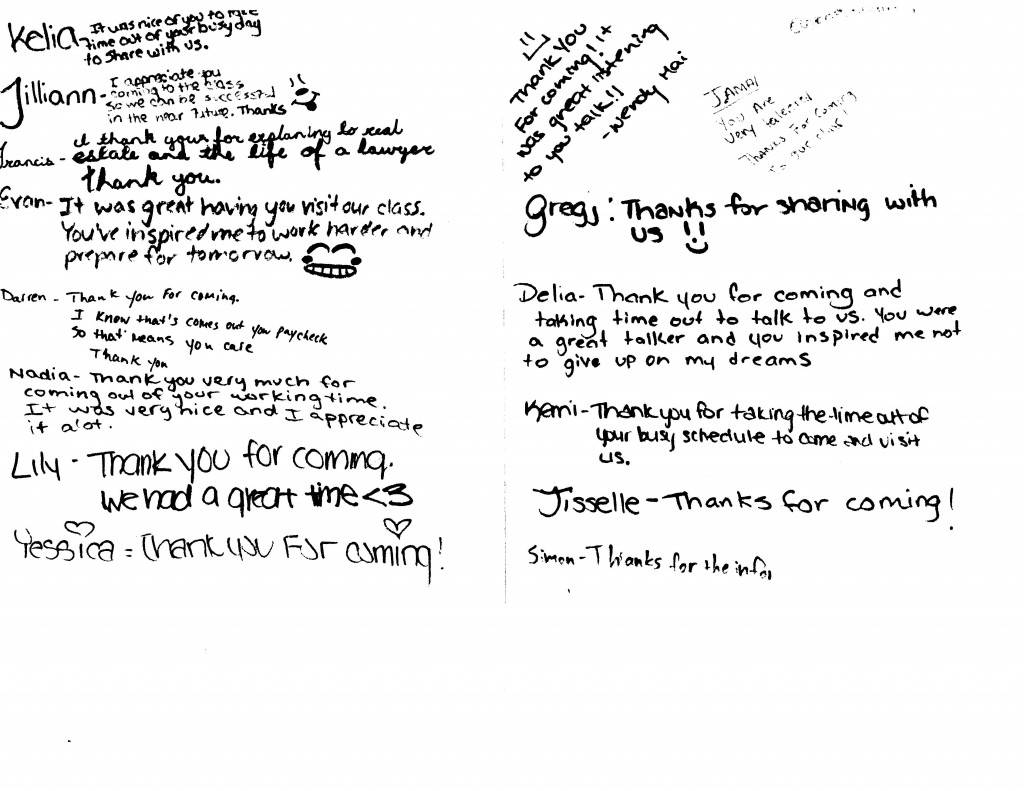 Kelia- It was nice of you to take
time out of your busy day
to share with us.
Jilliann- I appreciate you
coming to the class
so we can be successful
in the near future. Thanks
Francis- I thank your for explaning to real
estate and the life of a lawyer
thank you.
Evan- It was great having you visit our class.
You've inspired me to work harder and
prepare for tomorrow.
Darren - Thank you for coming.
I know that's comes out you paycheck
so that means you care
Thank you
Nadia- Thank you very much for
coming out of your working time.
It was very nice and I appreciate
it alot.
Lily - Thank you for coming.
We had a great time <3
Yessica = Thank you For coming!
Thank you
For coming! it
was great listening
to you talk!!
-Wendy Mai
JAMAL
You Are
very talented
Thanks For coming
to our class
Gregg: Thanks for sharing with
us !!
Delia- Thank you for coming and
taking time out to talk to us. You were
a great talker and you inspired me not
to give up on my dreams
Kemi- Thank you for taking the time out of
your busy schedule to come and visit
us.
Jisselle- Thanks for coming!
Simon- Thanks for the info